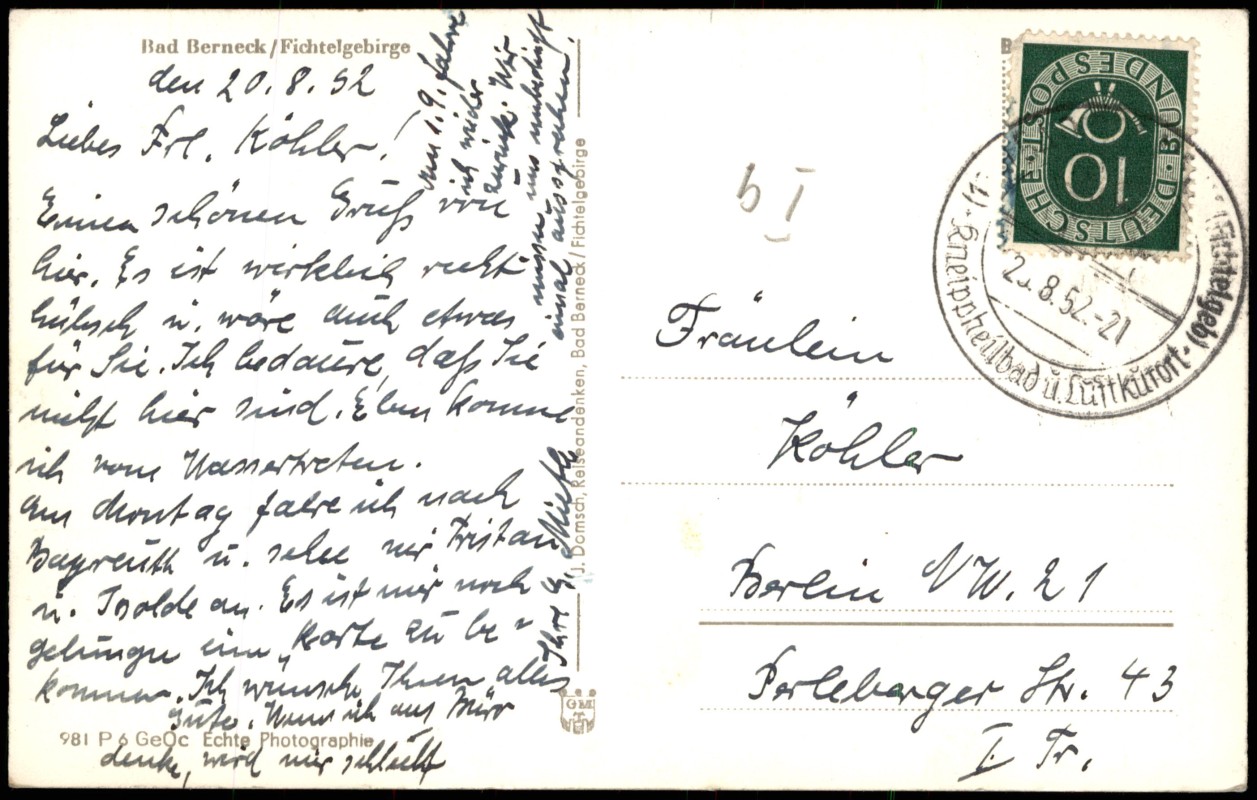 Bad Berneck/Fichtelgebirge
den 20.8.52
Liebes Frl. Köhler!
Einen schönen Gruß von
hier. Es ist wirklich recht
hübsch u. wäre auch etwas
für Sie. Ich bedaure, daß Sie
nicht hier sind. Eben komme
ich vom Wassertreten.
Am Montag fahre ich nach
Bayreuth u. sehe mir Tristan
u. Isolde an. Es ist mir noch
gelungen eine „Karte zu be-
kommen. Ich wünsche Ihnen alles
Gute. Wenn ich ans Büro
denke, wird mir schlecht
Am 1.9. fahre
ich wieder
zurück. Wir
müssen uns unbedingt
einmal aussprechen.
Ihre G. Mieth
981 P 6 GeOc Echte Photographie
J. Domsch, Reiseandenken, Bad Berneck/Fichtelgebirge
b I
DEUTSCHE BUNDESPOST
10
Kneippheilbad u. Luftkurort
(Fichtelgeb)
8.52.-21
Fräulein
Köhler
Berlin NW. 21
Perleberger Str. 43
I. Tr.